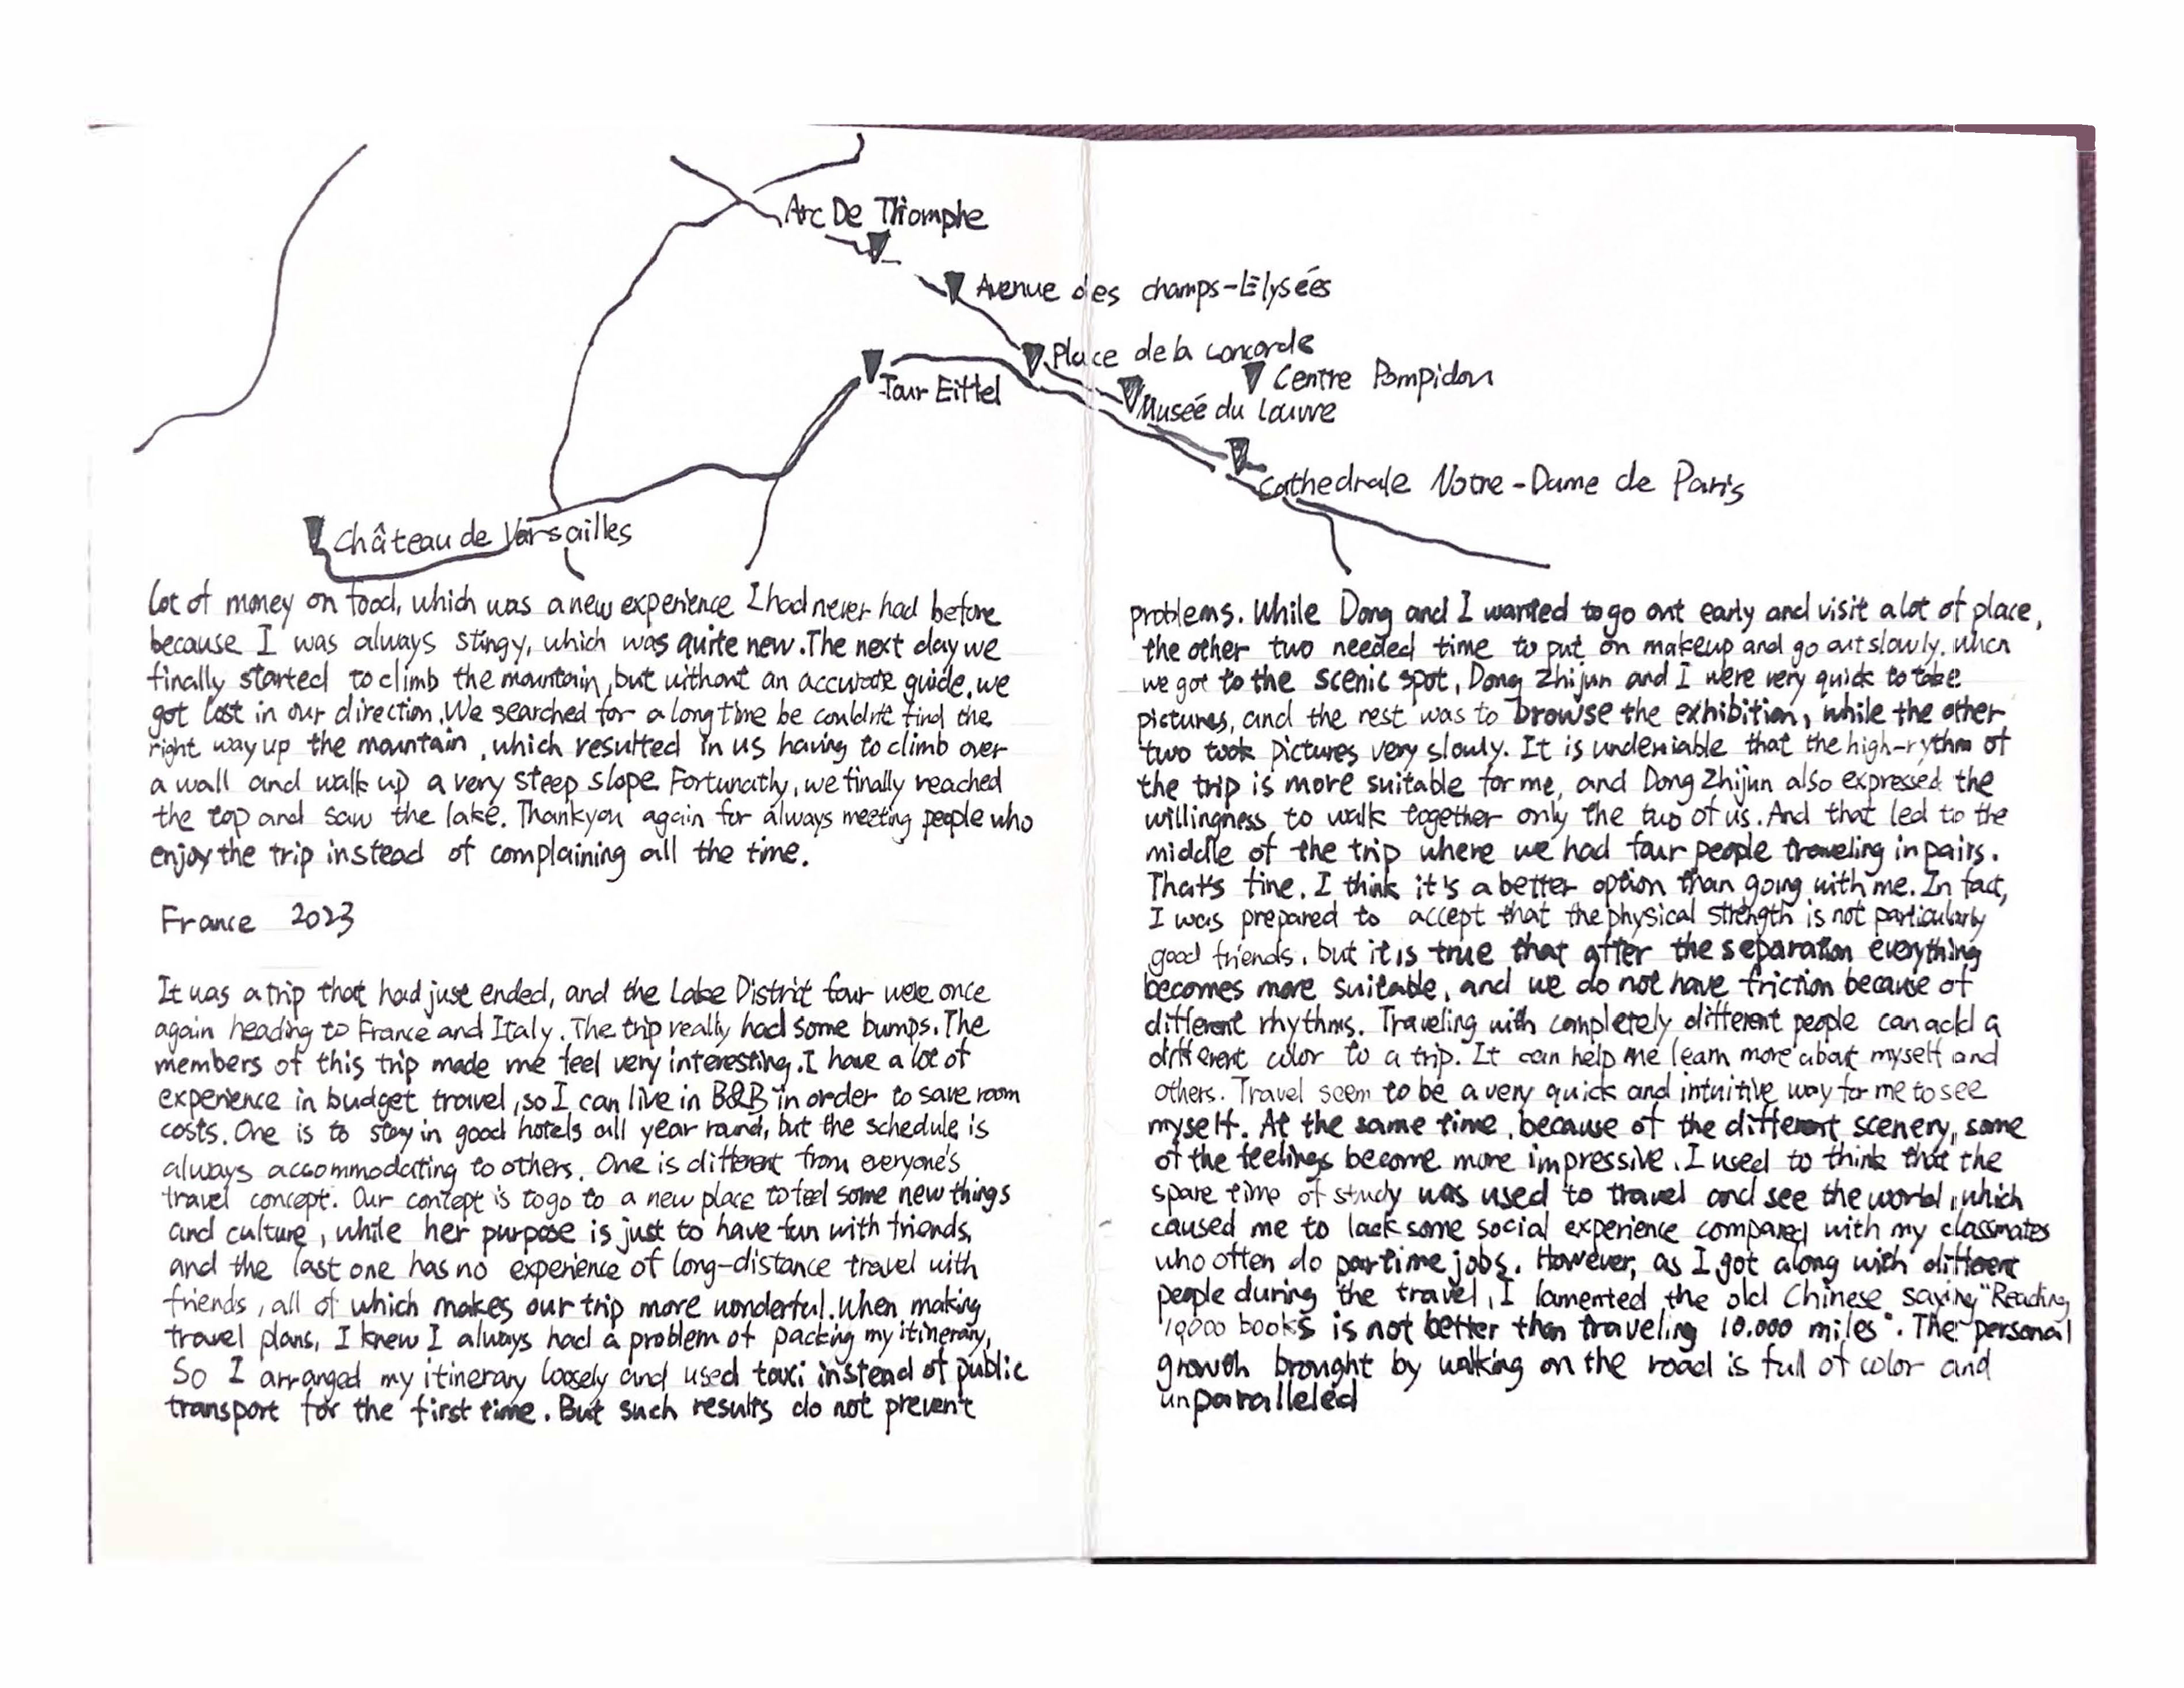 Arc De Triomphe
Avenue des champs-Elysées
Place de la concorde
Centre Pompidou
Tour Eiffel
Musée du Louvre
Cathedrale Notre-Dame de Paris
Château de Versailles
lot of money on food, which was a new experience I had never had before
because I was always stingy, which was quite new. The next day we
finally started to climb the mountain, but without an accurate guide, we
got lost in our direction. We searched for a long time be couldn't find the
right way up the mountain, which resulted in us having to climb over
a wall and walk up a very steep slope. Fortunatly, we finally reached
the top and saw the lake. Thankyou again for always meeting people who
enjoy the trip instead of complaining all the time.
France 2023
It was a trip that had just ended, and the Lake District four were once
again heading to France and Italy. The trip really had some bumps. The
members of this trip made me feel very interesting. I have a lot of
experience in budget travel, so I can live in B&B in order to save room
costs. One is to stay in good hotels all year round, but the schedule is
always accommodating to others. One is different from everyone's
travel concept. Our concept is to go to a new place to feel some new things
and culture, while her purpose is just to have fun with friends,
and the last one has no experience of long-distance travel with
friends, all of which makes our trip more wonderful. When making
travel plans, I knew I always had a problem of packing my itinerary,
So I arranged my itinerary loosely and used taxi instead of public
transport for the first time. But such results do not prevent
problems. While Dong and I wanted to go out early and visit a lot of place,
the other two needed time to put on makeup and go out slowly. when
we got to the scenic spot, Dong Zhijun and I were very quick to take
pictures, and the rest was to browse the exhibition, while the other
two took pictures very slowly. It is undeniable that the high-rythm of
the trip is more suitable for me, and Dong Zhijun also expressed the
willingness to walk together only the two of us. And that led to the
middle of the trip where we had four people traveling in pairs.
That's fine. I think it's a better option than going with me. In fact,
I was prepared to accept that the physical strength is not particularly
good friends, but it is true that after the separation everything
becomes more suitable, and we do not have friction because of
different rhythms. Traveling with completely different people can add a
different color to a trip. It can help me learn more about myself and
others. Travel seem to be a very quick and intuitive way for me to see
myself. At the same time, because of the different scenery, some
of the feelings become more impressive. I used to think that the
spare time of study was used to travel and see the world, which
caused me to lack some social experience compared with my classmates
who often do partime jobs. However, as I got along with different
people during the travel, I lamented the old Chinese saying "Reading
10,000 books is not better than traveling 10.000 miles". The personal
growth brought by walking on the road is full of color and
unparalleled